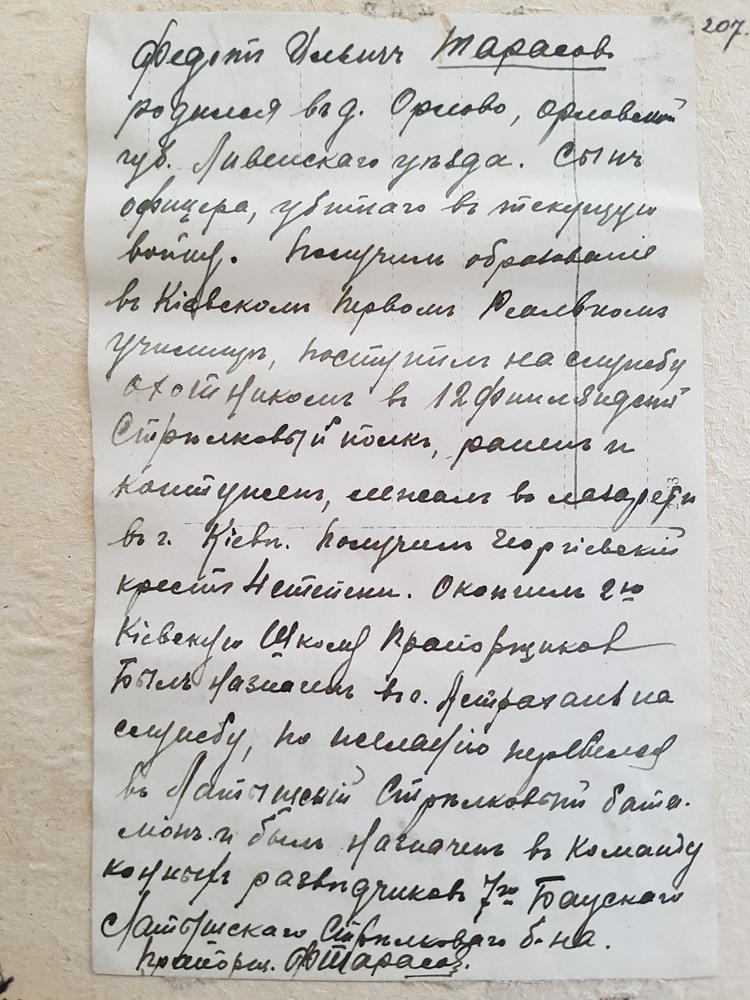 207.
Федотъ Ильичъ Тарасовъ
родился въ д. Орлово, Орловской
губ. Ливенскаго уѣзда. Сынъ
офицера, убитаго въ текущую
войну. Получилъ образованіе
въ Кіевскомъ Первомъ Реальномъ
училищѣ, поступилъ на службу
охотникомъ въ 12 Финляндскій
Стрѣлковый полкъ, раненъ и
контуженъ, лежалъ въ лазаретѣ
въ г. Кіевѣ. Получилъ Георгіевскій
крестъ 4 степени. Окончилъ 2ю
Кіевскую Школу Прапорщиковъ
Былъ назначенъ въ г. Астрахань на
службу, по желанію перевелся
въ Латышскій Стрѣлковый бата-
ліонъ и былъ назначенъ въ команду
конныхъ развѣдчиковъ 7го Баускаго
Латышскаго Стрѣлковаго б-на.
Прапорщ. ФТарасовъ.